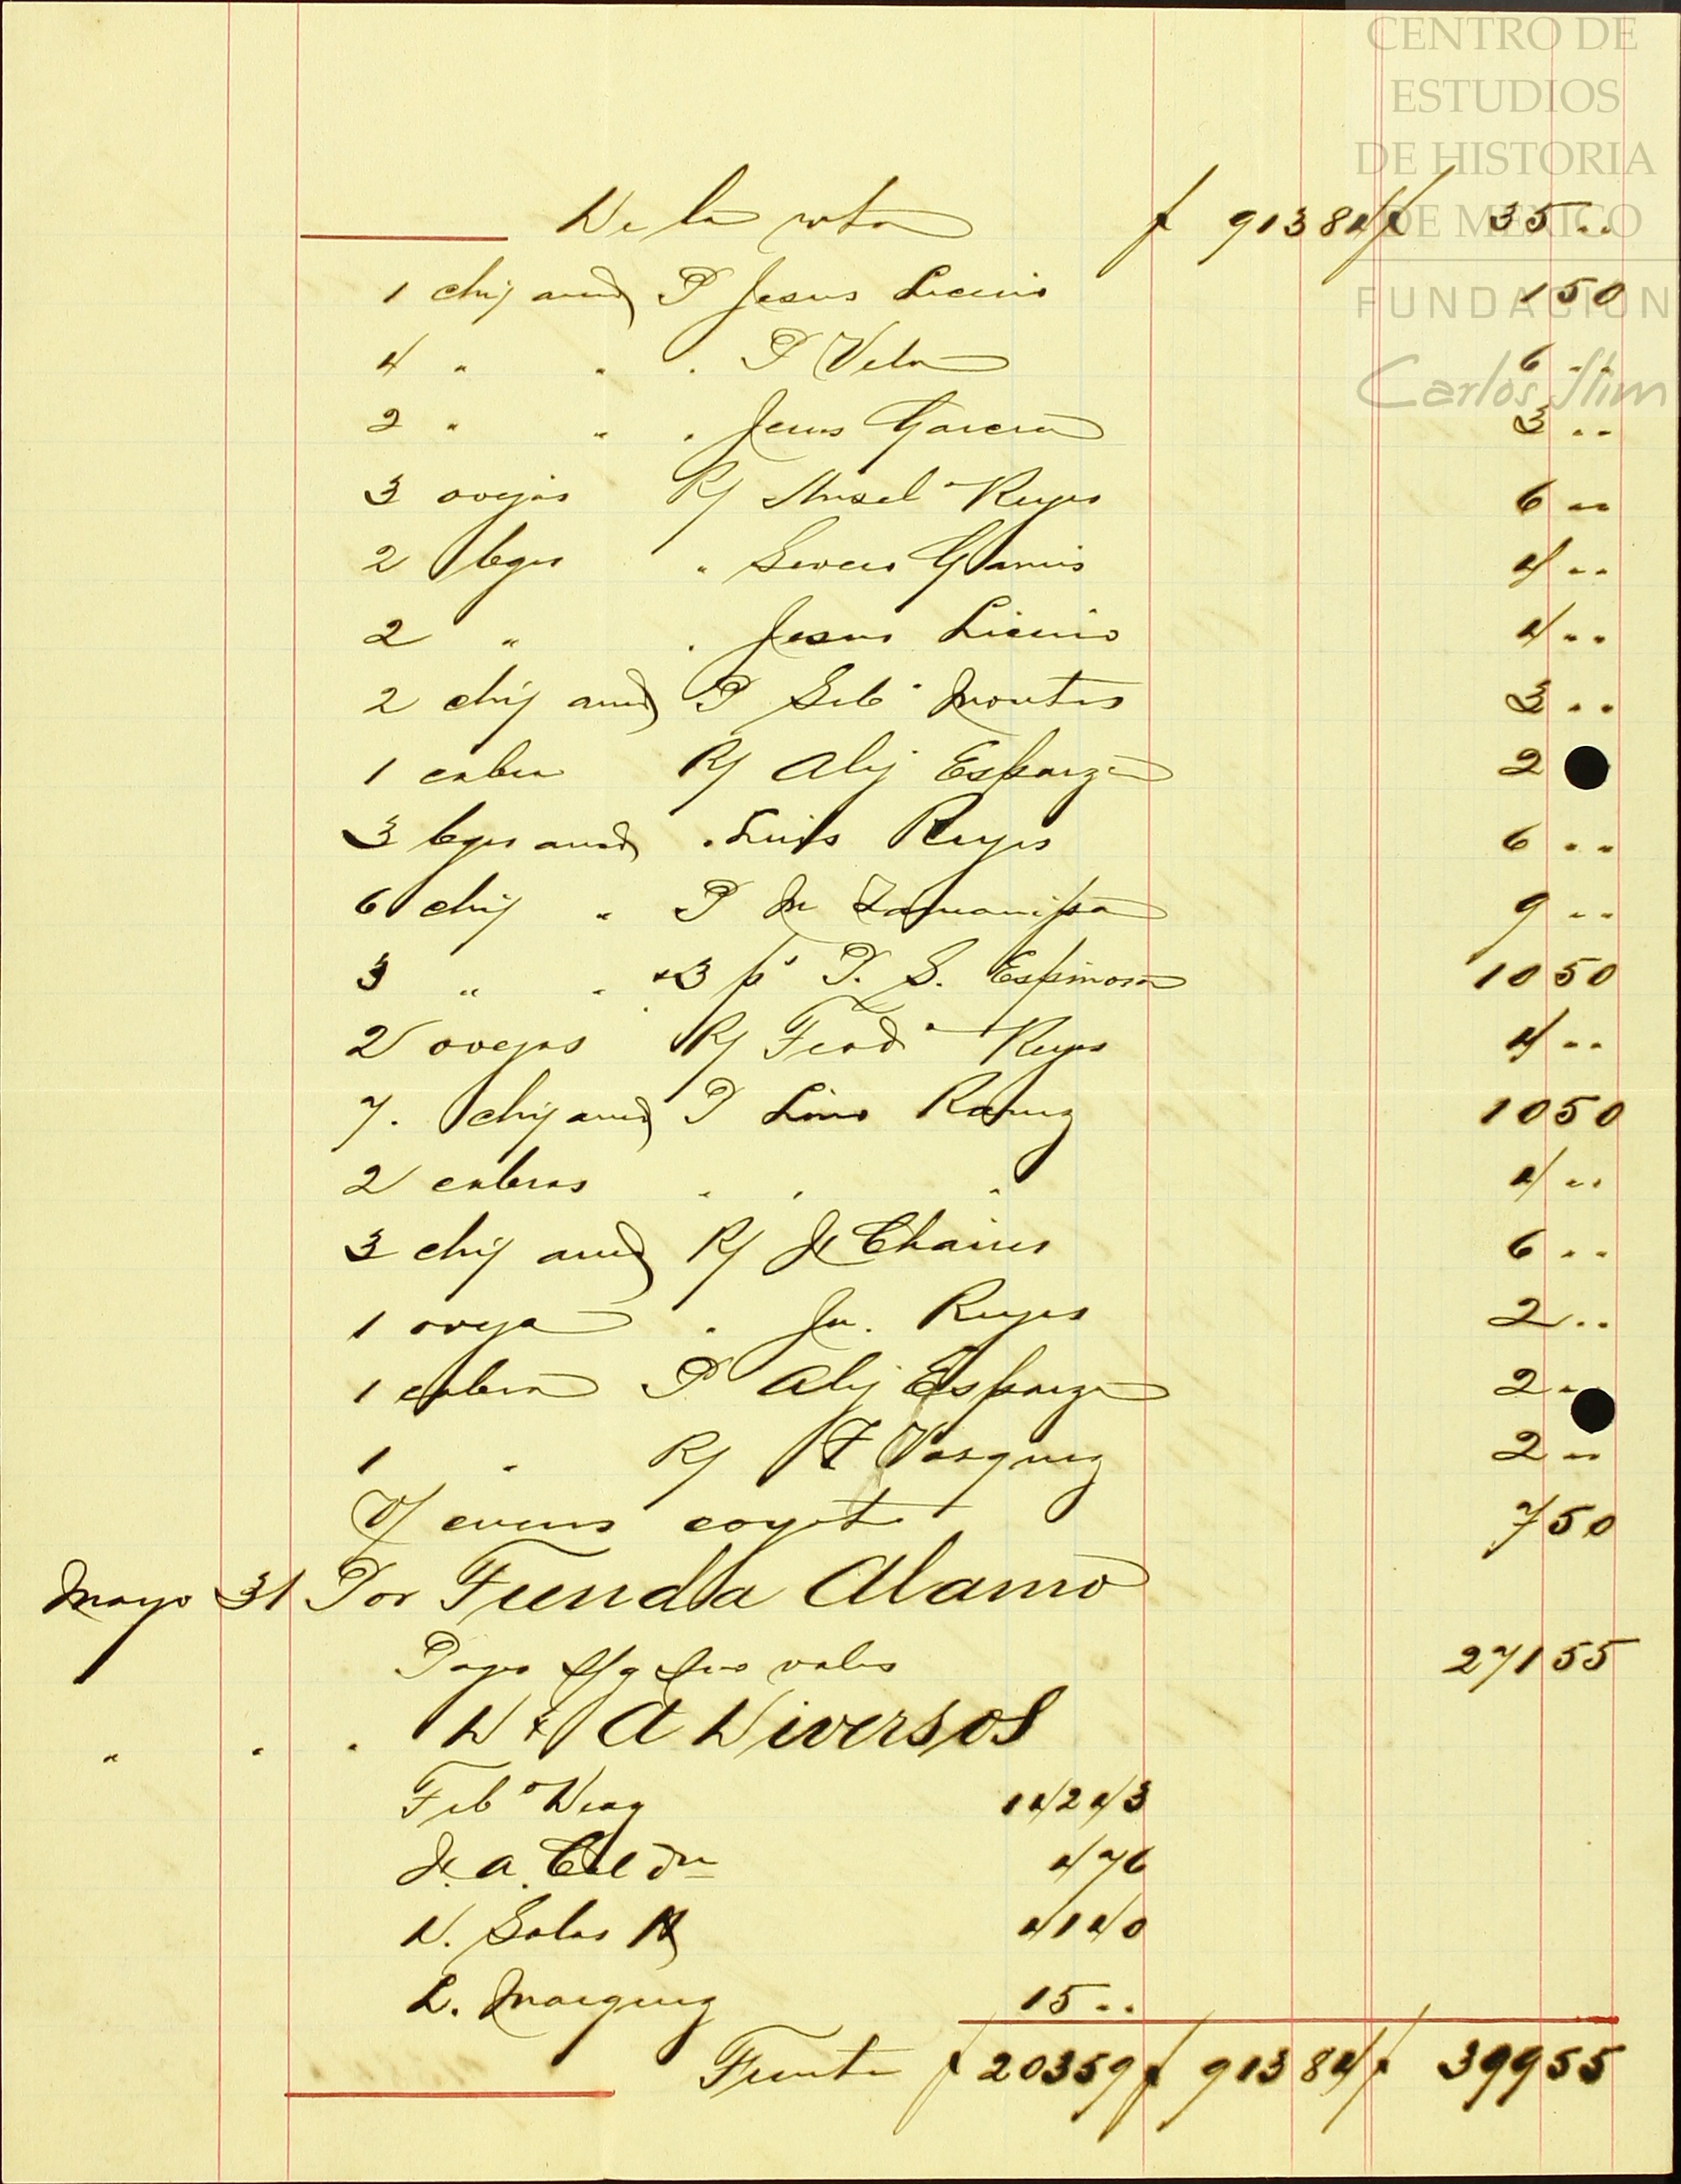 CENTRO DE
ESTUDIOS
DE HISTORIA
DE MÉXICO
FUNDACIÓN
Carlos Slim
De la vta $ 913 84 $ 35 ..
1 chij and P Jesus Licerio 1 50
4 " " . P Vela 6 ..
2 " " . Jesus Garcia 3 ..
3 ovejas R/ Ansel Reyes 6 ..
2 bgos " Severo 4 ..
2 " . Jesus Licerio 4 ..
2 chij and P Seb Montes 3 ..
1 cabra R/ Alej Esparza 2
3 bgos and . Luis Reyes 6 ..
6 chij " P 9 ..
3 " . 3 p' P. S. Espinosa 10 50
2 ovejas R/ Feod Reyes 4 ..
7. chij and P Lino Ramz 10 50
2 cabras " " " 4 ..
3 chij and R/ Chaires 6 ..
1 oveja . Jn. Reyes 2 ..
1 cabra P Alej Esparza 2 ..
1 " R/ F Vasquez 2 ..
P/ cueros coyote 7 50
Mayo 31 Por Tienda Alamo
Pago s/g sus vales 271 55
" " . D & A Diversos
Feb° 142 43
J. A. 4 76
N. Salas 41 40
L. Marquez 15 ..
Frente $ 203 59 $ 913 84 $ 399 55